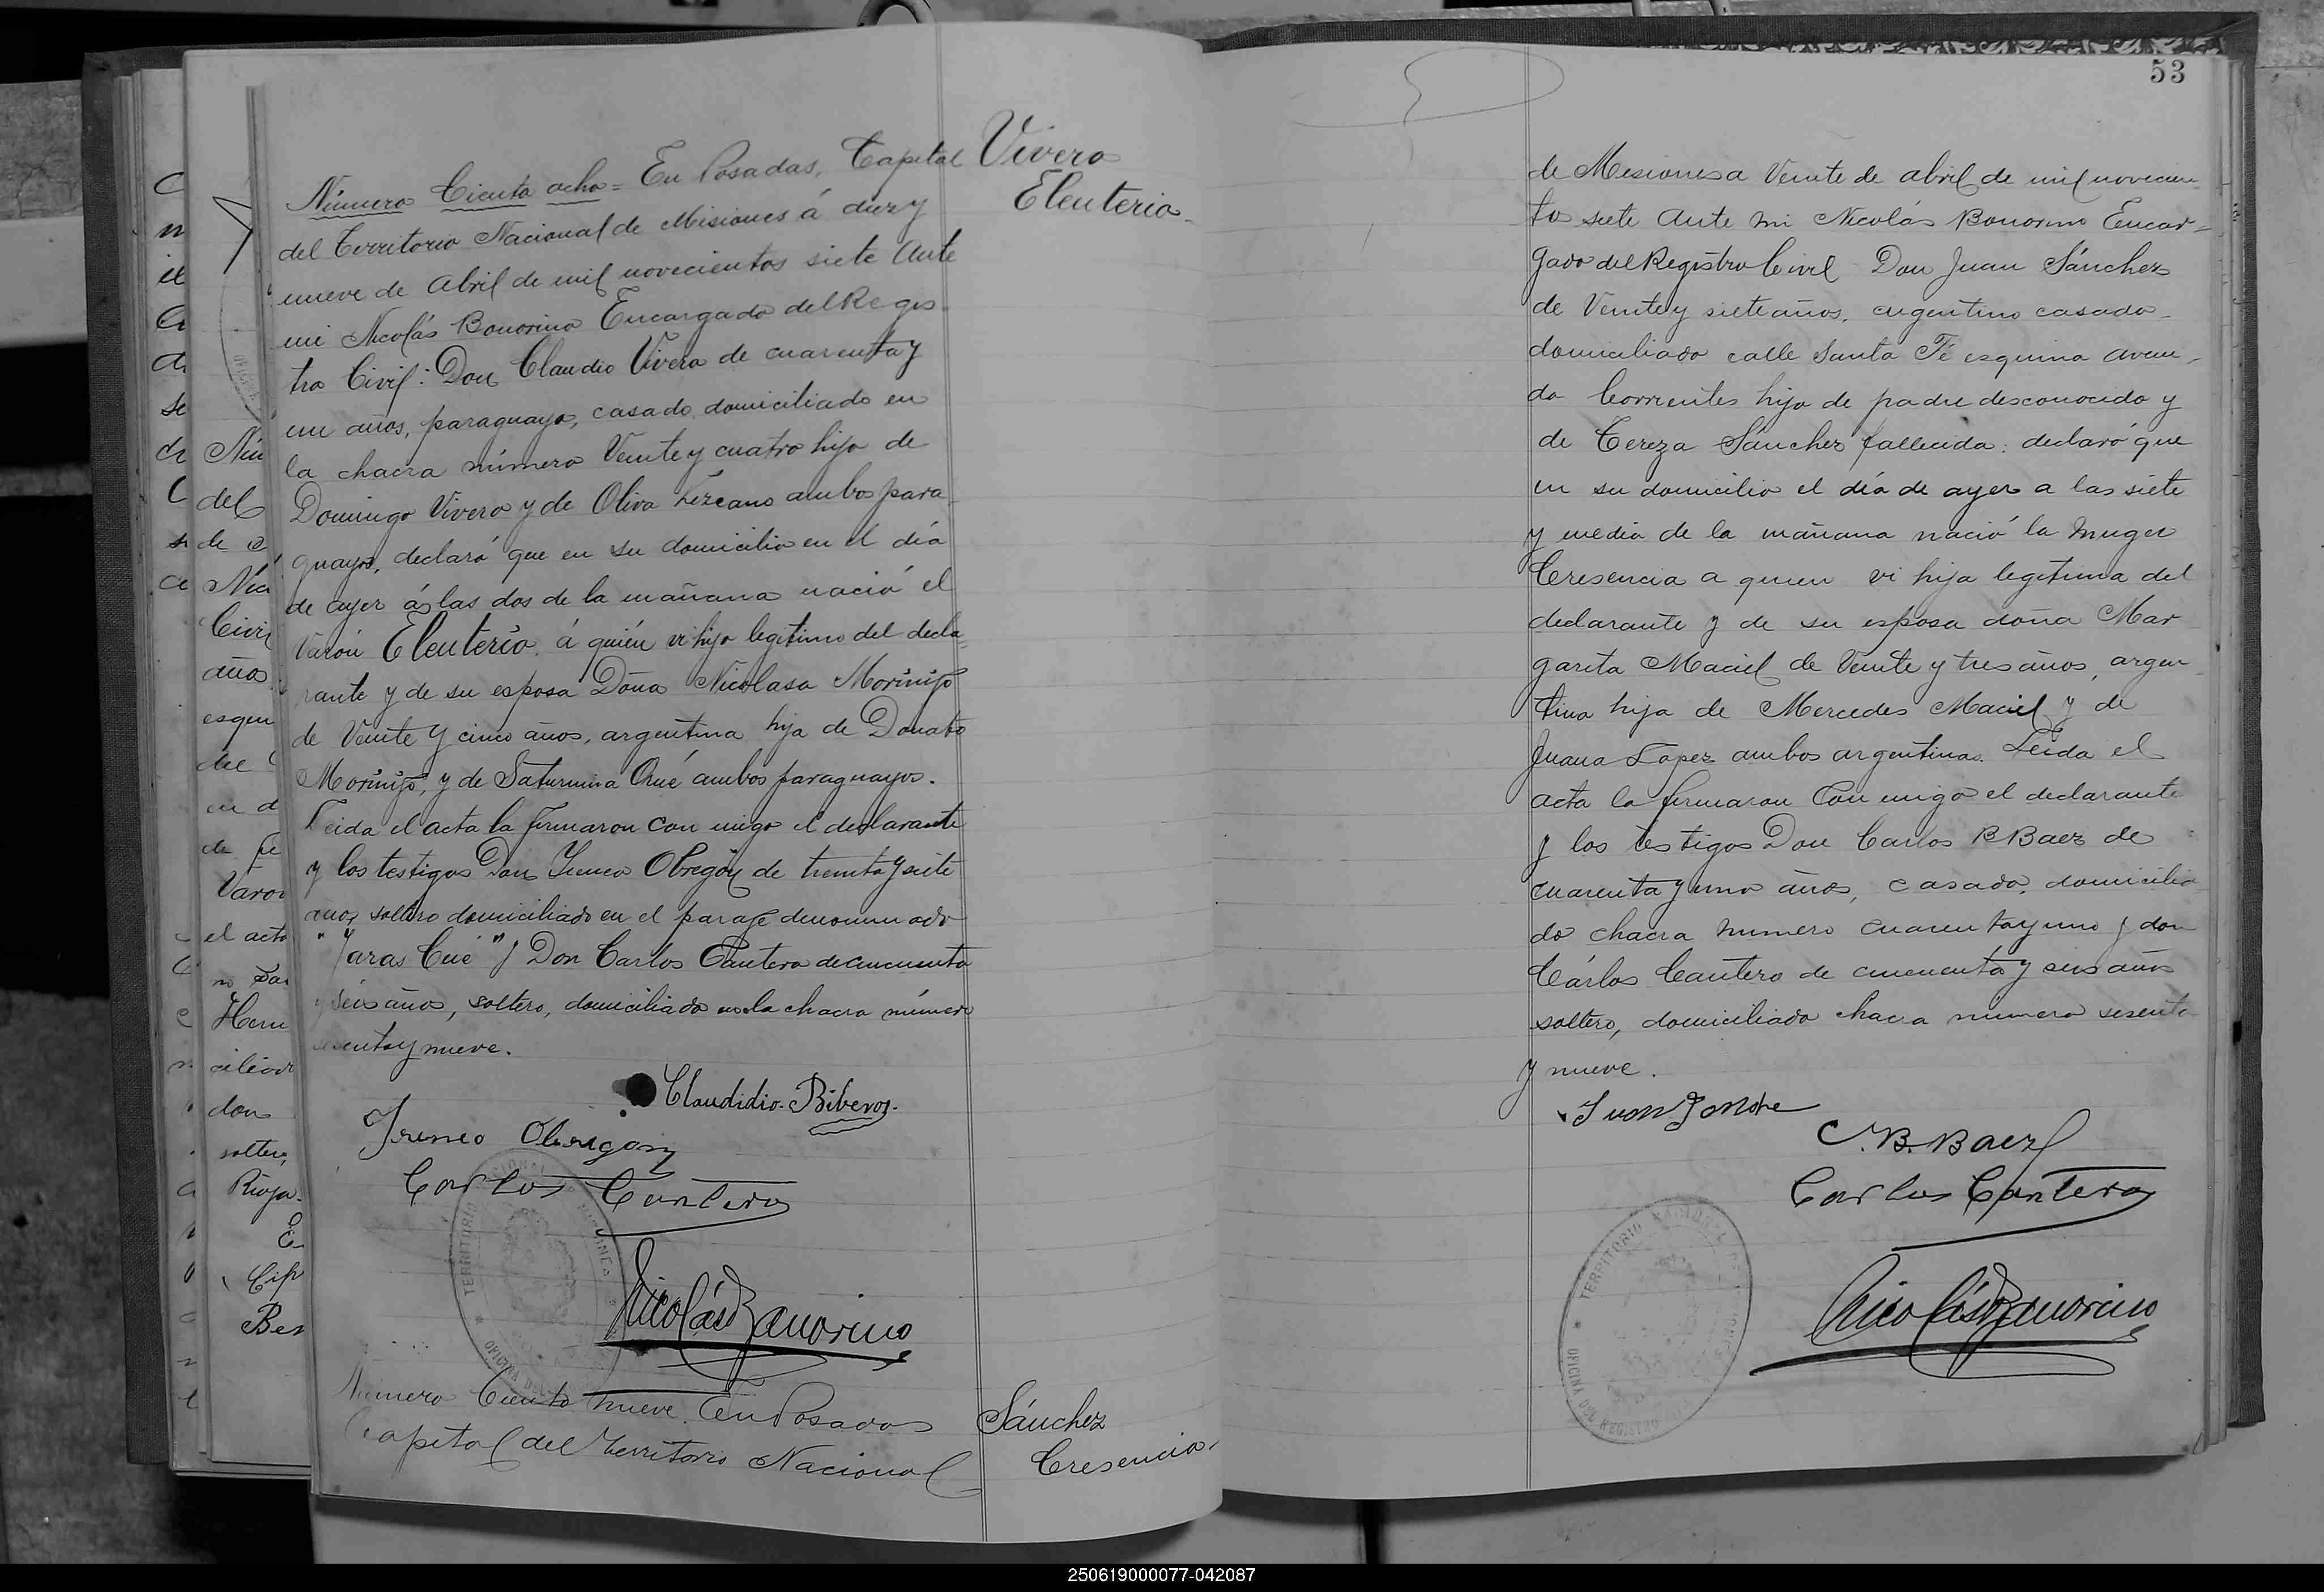 53
Número Ciento ocho = En Posadas, Capital
del Territorio Nacional de Misiones á diez y
nueve de Abril de mil novecientos siete Ante
mi Nicolás Bonorino Encargado del Regis
tro Civil: Don Claudio Vivero de cuarenta y
un años, paraguayo, casado, domiciliado en
la chacra número Veinte y cuatro hijo de
Domingo Vivero y de Oliva Lezcano ambos para
guayos, declaró que en su domicilio en el día
de ayer á las dos de la mañana nació el
Varón Eleuterio, á quién vi hijo legítimo del decla=
rante y de su esposa Doña Nicolasa Moriñigo
de Veinte y cinco años, argentina hija de Donato
Moriñigo, y de Saturnina Orué ambos paraguayos.
Leida el acta la firmaron con migo el declarante
y los testigos Don Ireneo Obregón de treinta y siete
años, soltero domiciliado en el paraje denominado
"Jaras Cué" y Don Carlos Cantero de cincuenta
y seis años, soltero, domiciliado en la chacra número
sesenta y nueve.
Claudidio. Biberos.
Ireneo Obregon
Carlos Cantero
Nicolás Bonorino
TERRITORIO NACIONAL MISIONES
OFICINA DEL
Número Ciento nueve En Posadas
Capital del Territorio Nacional
Vivero
Eleuterio
Sánchez
Cresencia
de Misiones a Veinte de abril de mil novecien
to siete Ante mi Nicolás Bonorino Encar=
gado del Registro Civil Don Juan Sánchez
de Veinte y siete años, argentino casado
domiciliado calle Santa Fé esquina aveni
da Corrientes hijo de padre desconocido y
de Tereza Sánchez fallecida: declaró que
en su domicilio el día de ayer a las siete
y media de la mañana nació la muger
Cresencia a quien vi hija legítima del
declarante y de su esposa doña Mar
garita Maciel de Veinte y tres años, argen
tina hija de Mercedes Maciel y de
Juana Lopez ambos argentinos. Leida el
acta la firmaron con migo el declarante
y los testigos Don Carlos B Baez de
cuarenta y uno años, casado, domicilia
do chacra numero cuarenta y uno y don
Cárlos Cantero de cincuenta y seis años
soltero, domiciliado chacra número sesenta
y nueve.
C. B. Baez
Carlos Cantero
Nicolás Bonorino
TERRITORIO NACIONAL
OFICINA DEL REGISTRO
250619000077-042087